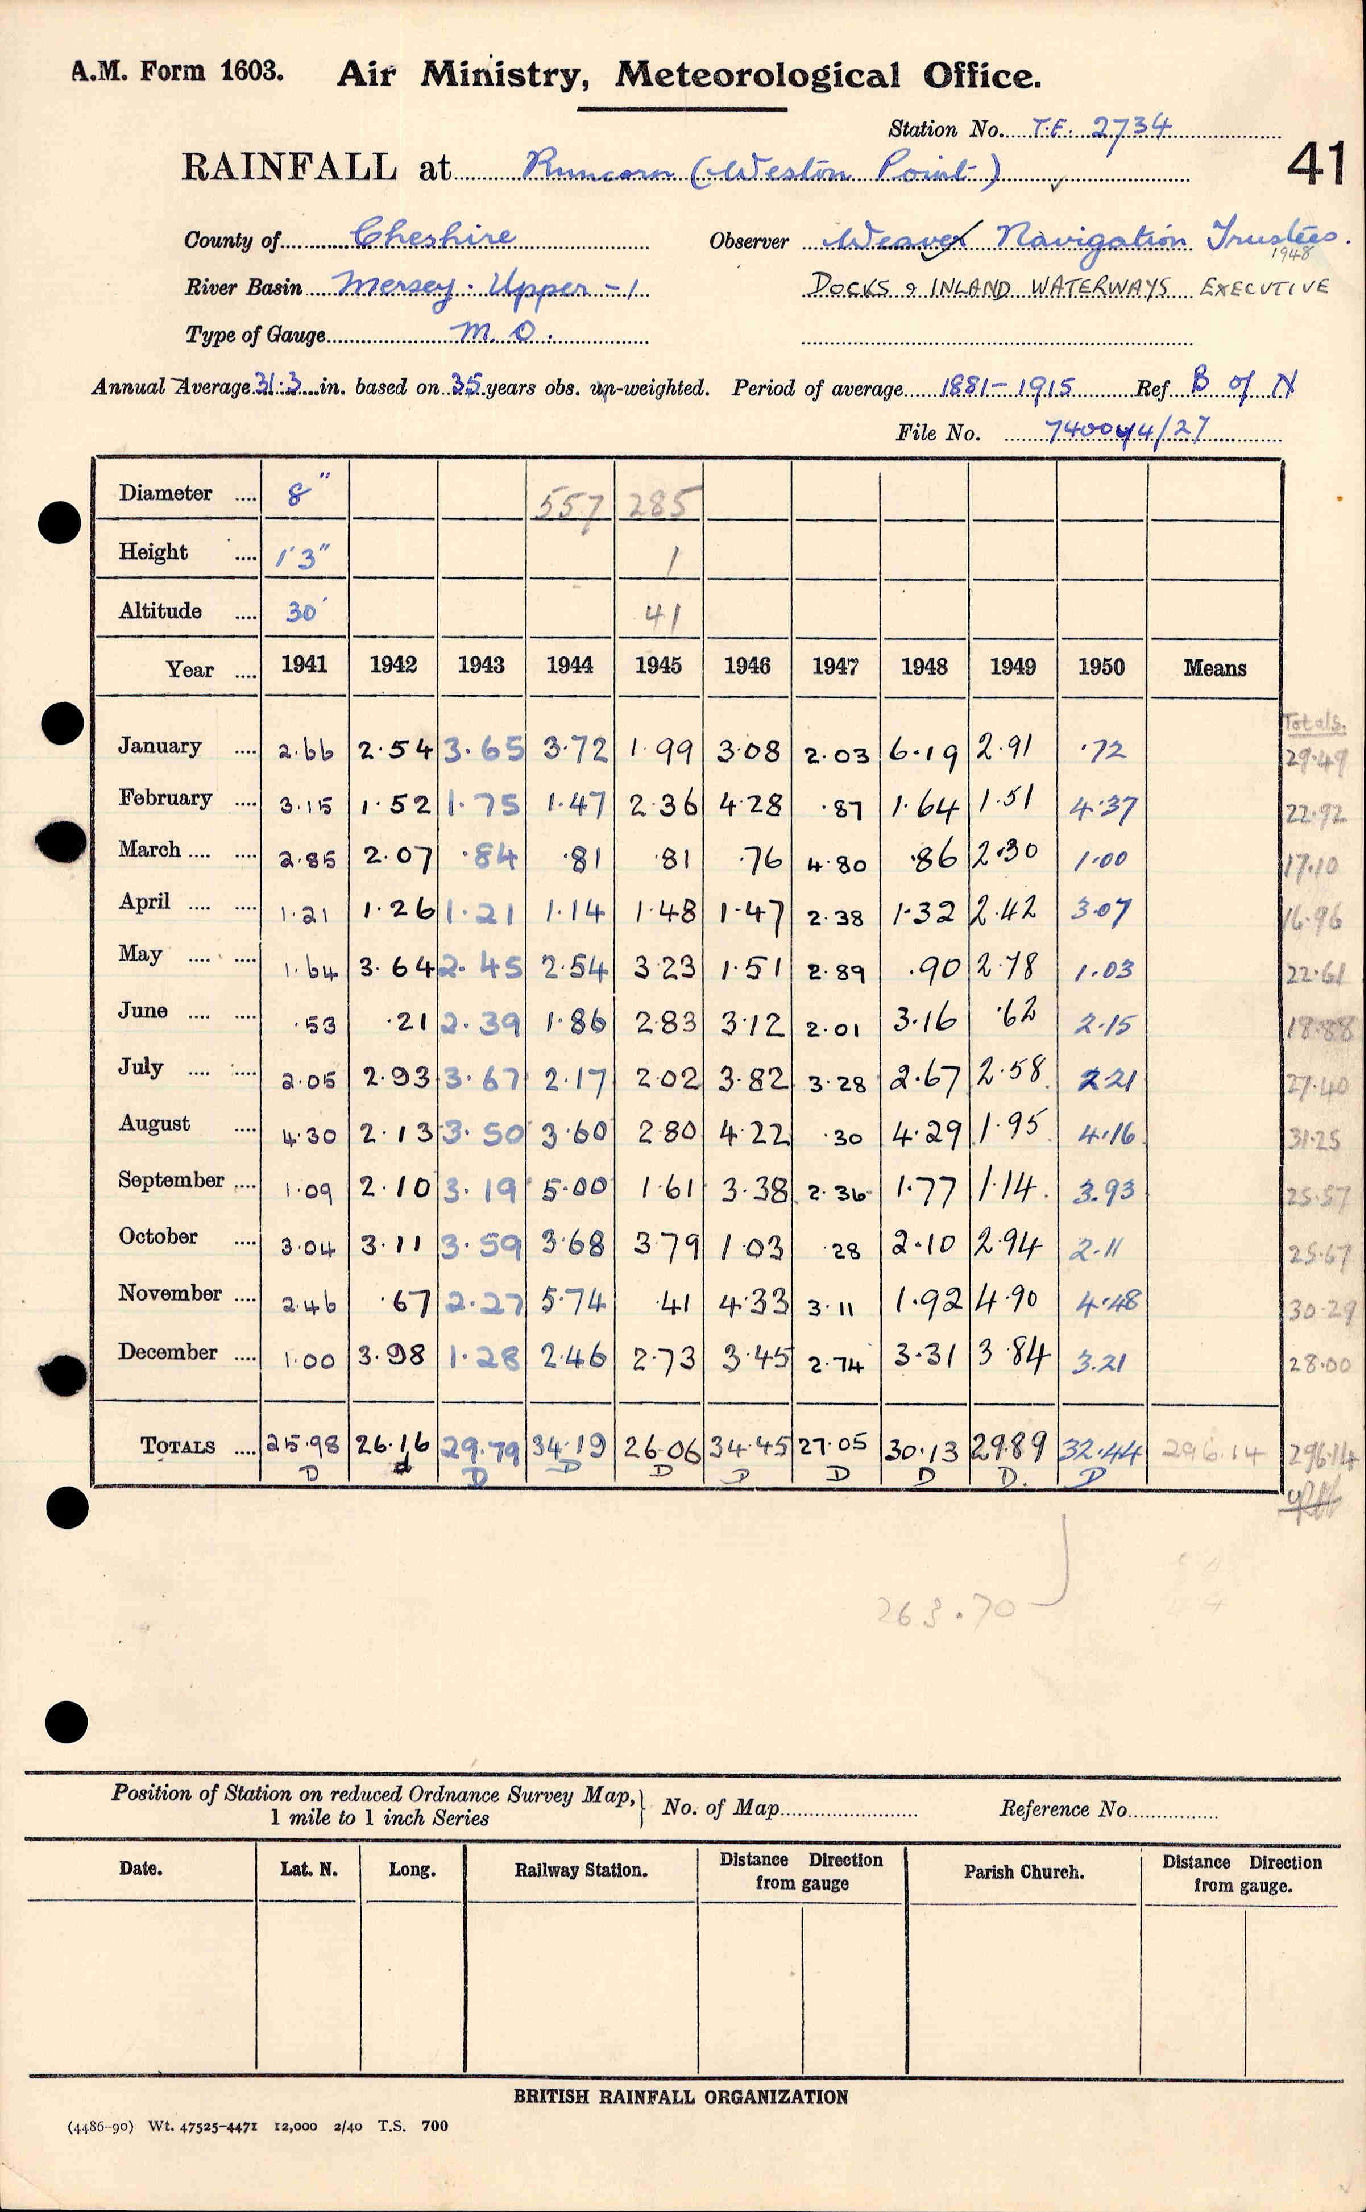 A.M. Form 1603. Air Ministry, Meteorological Office.
Station No. T.F. 2734
41
RAINFALL at Runcorn (Weston Point) ✓
County of Cheshire Observer Weaver Navigation Trustees.
1948
River Basin Mersey. Upper - 1 DOCKS & INLAND WATERWAYS EXECUTIVE
Type of Gauge M.O.
Annual Average 31.3 in. based on 35 years obs. un-weighted. Period of average 1881-1915 Ref B of N
File No. 740044/27
Diameter .... 8" 557 285
Height .... 1'3" 1
Altitude .... 30' 41
Year .... 1941 1942 1943 1944 1945 1946 1947 1948 1949 1950 Means
Totals.
January .... 2.66 2.54 3.65 3.72 1.99 3.08 2.03 6.19 2.91 .72 29.49
February .... 3.15 1.52 1.75 1.47 2.36 4.28 .87 1.64 1.51 4.37 22.92
March .... .... 2.85 2.07 .84 .81 .81 .76 4.80 .86 2.30 1.00 17.10
April .... .... 1.21 1.26 1.21 1.14 1.48 1.47 2.38 1.32 2.42 3.07 16.96
May .... .... 1.64 3.64 2.45 2.54 3.23 1.51 2.89 .90 2.78 1.03 22.61
June .... .... .53 .21 2.39 1.86 2.83 3.12 2.01 3.16 .62 2.15 18.88
July .... .... 2.05 2.93 3.67 2.17 2.02 3.82 3.28 2.67 2.58 2.21 27.40
August .... 4.30 2.13 3.50 3.60 2.80 4.22 .30 4.29 1.95 4.16 31.25
September .... 1.09 2.10 3.19 5.00 1.61 3.38 2.36 1.77 1.14 3.93 25.57
October .... 3.04 3.11 3.59 3.68 3.79 1.03 .28 2.10 2.94 2.11 25.67
November .... 2.46 .67 2.27 5.74 .41 4.33 3.11 1.92 4.90 4.48 30.29
December .... 1.00 3.98 1.28 2.46 2.73 3.45 2.74 3.31 3.84 3.21 28.00
TOTALS .... 25.98 26.16 29.79 34.19 26.06 34.45 27.05 30.13 29.89 32.44 296.14 296.14
D d D D D D D D D. D
263.70
Position of Station on reduced Ordnance Survey Map, } No. of Map Reference No
1 mile to 1 inch Series
Date. Lat. N. Long. Railway Station. Distance Direction from gauge Parish Church. Distance Direction from gauge.
BRITISH RAINFALL ORGANIZATION
(4486-90) Wt. 47525-4471 12,000 2/40 T.S. 700